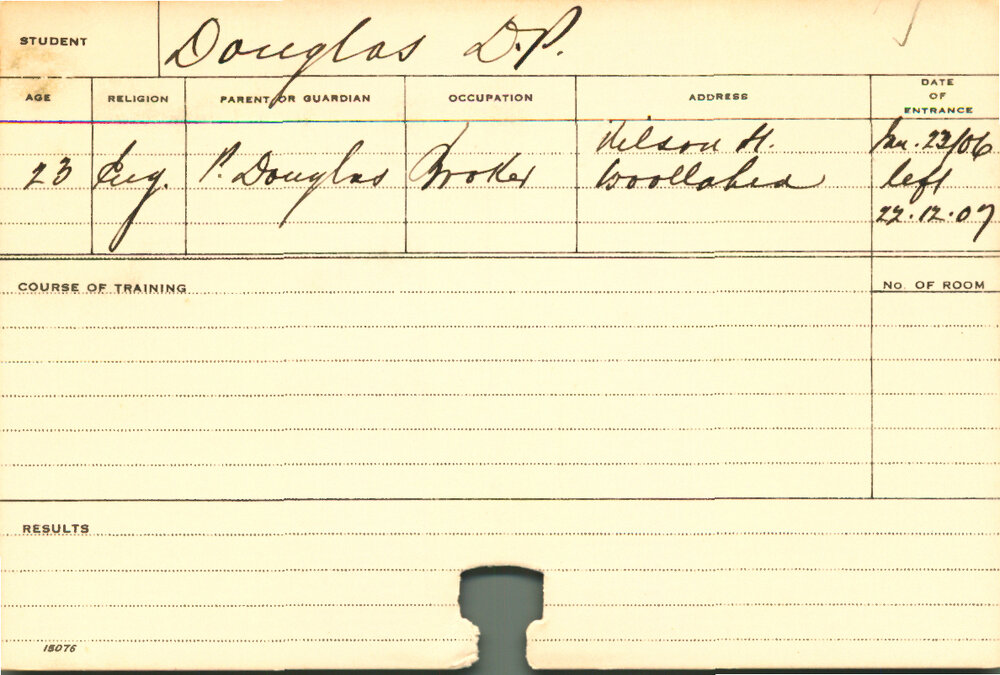 STUDENT Douglas D.P.
AGE RELIGION PARENT OR GUARDIAN OCCUPATION ADDRESS DATE OF ENTRANCE
Nelson St. Jan. 23/06
23 Eng. P. Douglas Broker Woollahra left
22.12.07
COURSE OF TRAINING No. OF ROOM
RESULTS
15076